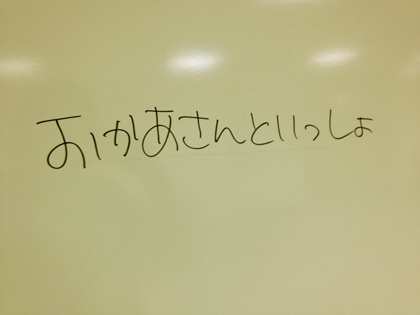 おかあさんといっしょ